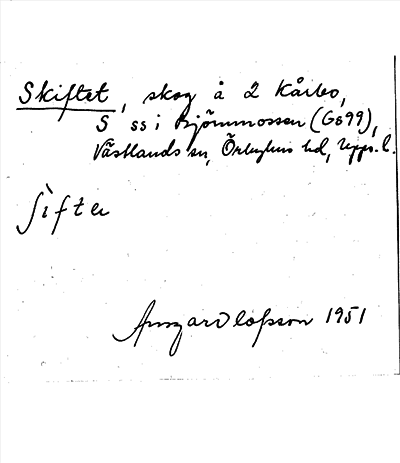 Skiftet, skog å 2 Kårbo,
S ss i Björnmossen (Gs99),
Västlands sn, Örbyhus hd, Upps. l.
ʃìfte
Olofsson 1951